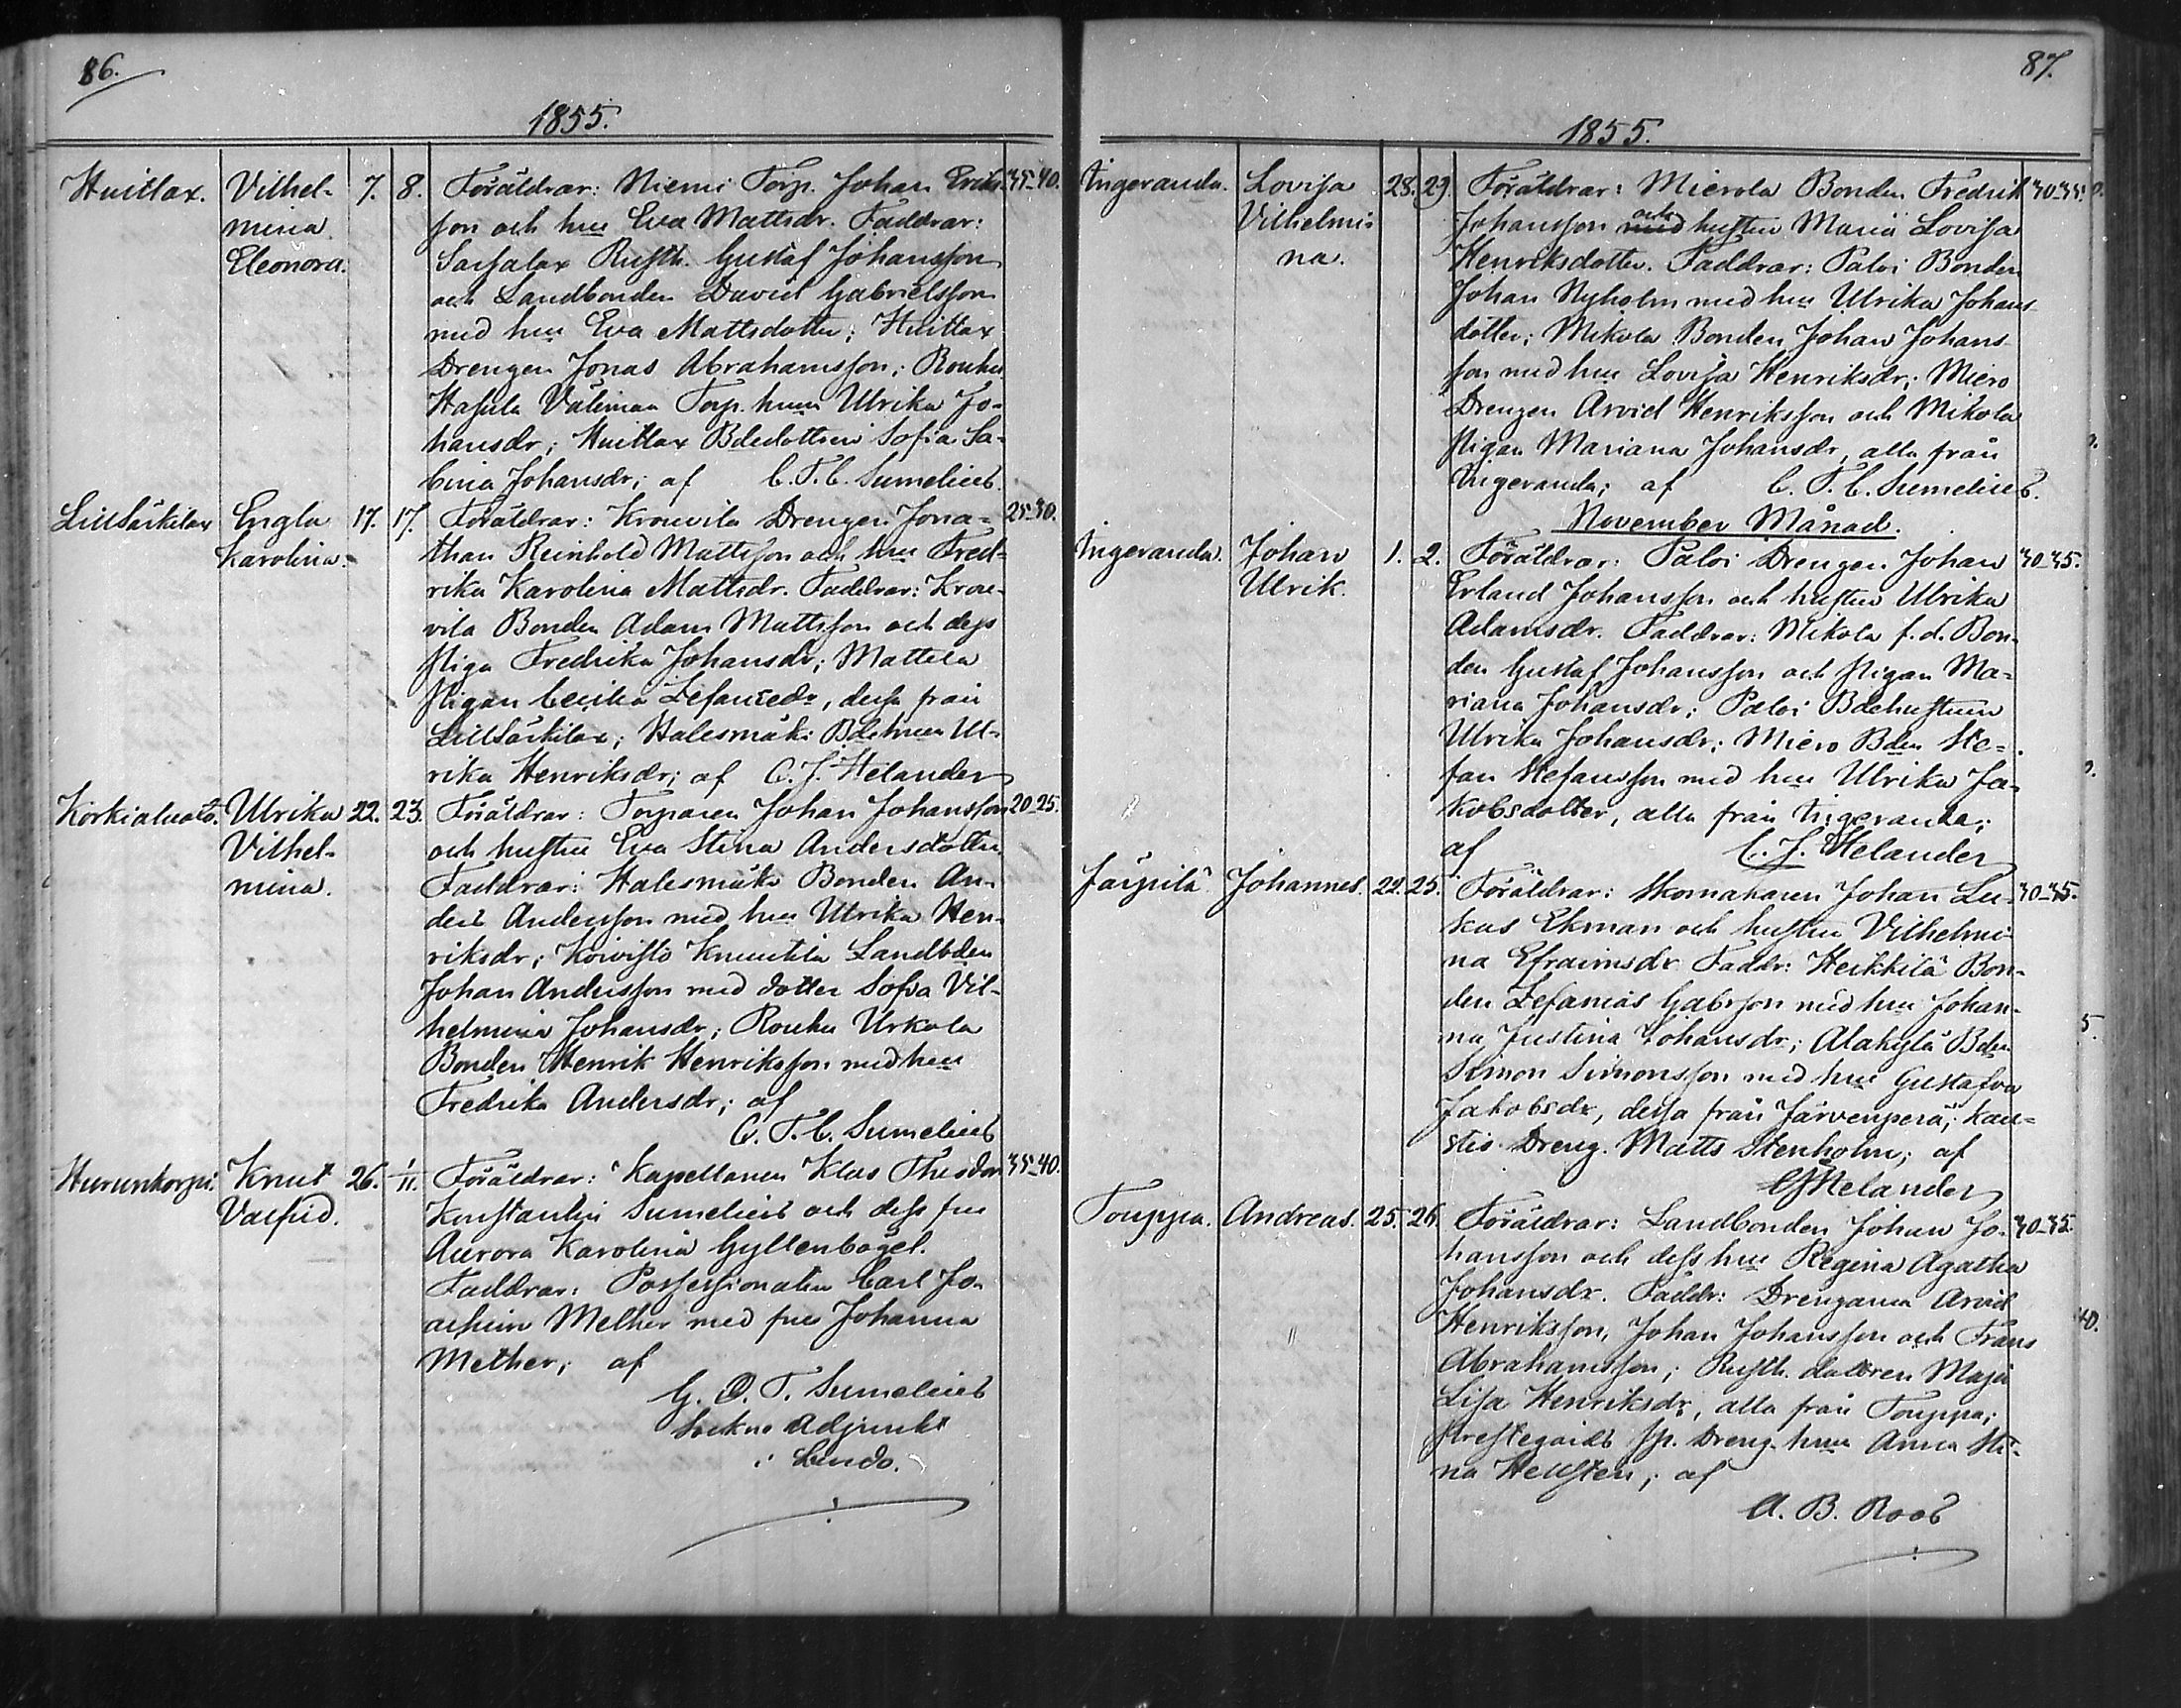 86.
1855.
Huitlax. Vilhel- 7. 8. Föräldrar: Niemi Torp. Johan Eriks- 35-40.
mina son och hu Eva Mattsdr. Faddrar:
Eleonora. Sarsalax Rusth. Gustaf Johansson
och Landbonden David Gabrielsson
med hu Eva Mattsdotter; Huitlax
Drengen Jonas Abrahamsson; Rouhu
Hasula Välimaa Torp. hun Ulrika Jo-
hansdr; Huitlax Bdedottren Sofia Sa-
bina Johansdr; af C. T. C. Sumelius.
Lill Särkilax Engla 17. 17. Föräldrar: Krouvila Drengen Jona- 25-30.
Karolina. than Reinhold Mattsson och hu Fred-
rika Karolina Mattsdr. Faddrar: Krou-
vila Bonden Adam Mattsson och dess
Piga Fredrika Johansdr; Mattila
Pigan Cecilia Zefaniedr, dessa från
Lill Särkilax; Halesmäki Bdehun Ul-
rika Henriksdr; af C. J. Helander
Körkialuoto. Ulrika 22. 23. Föräldrar: Torparen Johan Johansson 20-25.
Vilhel- och hustru Eva Stina Andersdotter.
mina. Faddrar: Halesmäki Bonden An-
ders Andersson med hu Ulrika Hen-
riksdr; Koivisto Knuutila Landbden
Johan Andersson med dotter Sofia Vil-
helmina Johansdr; Rouhu Urkola
Bonden Henrik Henriksson med hu
Fredrika Andersdr; af
C. T. C. Sumelius
Hurunkorpi. Knut 26. 1/11. Föräldrar: Kapellanen Klas Theodor 35-40.
Valfrid. Konstantin Sumelius och dess fru
Aurora Karolina Gyllenbögel.
Faddrar: Possessionaten Carl Jo-
achim Mether med fru Johanna
Mether; af
G. O. T. Sumelius
Sockne Adjunkt
i Lundo.
87.
1855.
Tingeranda. Lovisa 28. 29. Föräldrar: Mierola Bonden Fredrik 30-35.
Vilhelmi- Johansson med och hustru Maria Lovisa
na. Henriksdotter. Faddrar: Paloi Bonden
Johan Nyholm med hu Ulrika Johans-
dotter; Mikola Bonden Johan Johans-
son med hu Lovisa Henriksdr; Miero
Drengen Arvid Henriksson och Mikola
Pigan Mariana Johansdr, alla från
Tingeranda; af C. T. C. Sumelius.
November Månad.
Tingeranda. Johan 1. 2. Föräldrar: Paloi Drengen Johan 30-35.
Ulrik. Erland Johansson och hustru Ulrika
Adamsdr. Faddrar: Mikola f.d. Bon-
den Gustaf Johansson och Pigan Ma-
riana Johansdr; Paloi Bdehustrun
Ulrika Johansdr; Miero Bden Ste-
fan Stefansson med hu Ulrika Ja-
kobsdotter, alla från Tingeranda;
af C. J. Helander
Järppilä Johannes. 22. 25. Föräldrar: Skomakaren Johan Lu- 30-35.
kas Ekman och hustru Vilhelmi-
na Efraimsdr Faddr: Heikkilä Bon-
den Zefanias Gabrsson med hu Johan-
na Justina Johansdr; Alakylä Bden
Simon Simonsson med hu Gustafva
Jakobsdr, dessa från Järvenperä; Kau-
stis Dreng. Matts Stenholm; af
CJHelander
Touppa. Andreas. 25. 26. Föräldrar: Landbonden Johan Jo- 30-35.
hansson och dess hu Regina Agatha
Johansdr. Faddr: Drengarna Arvid
Henriksson, Johan Johansson och Frans
Abrahamsson; Rusth. dottren Maja
Lisa Henriksdr, alla från Touppa;
Prestegårds sp. Dreng. hun Anna Sti-
na Hellsten; af
A. B. Roos